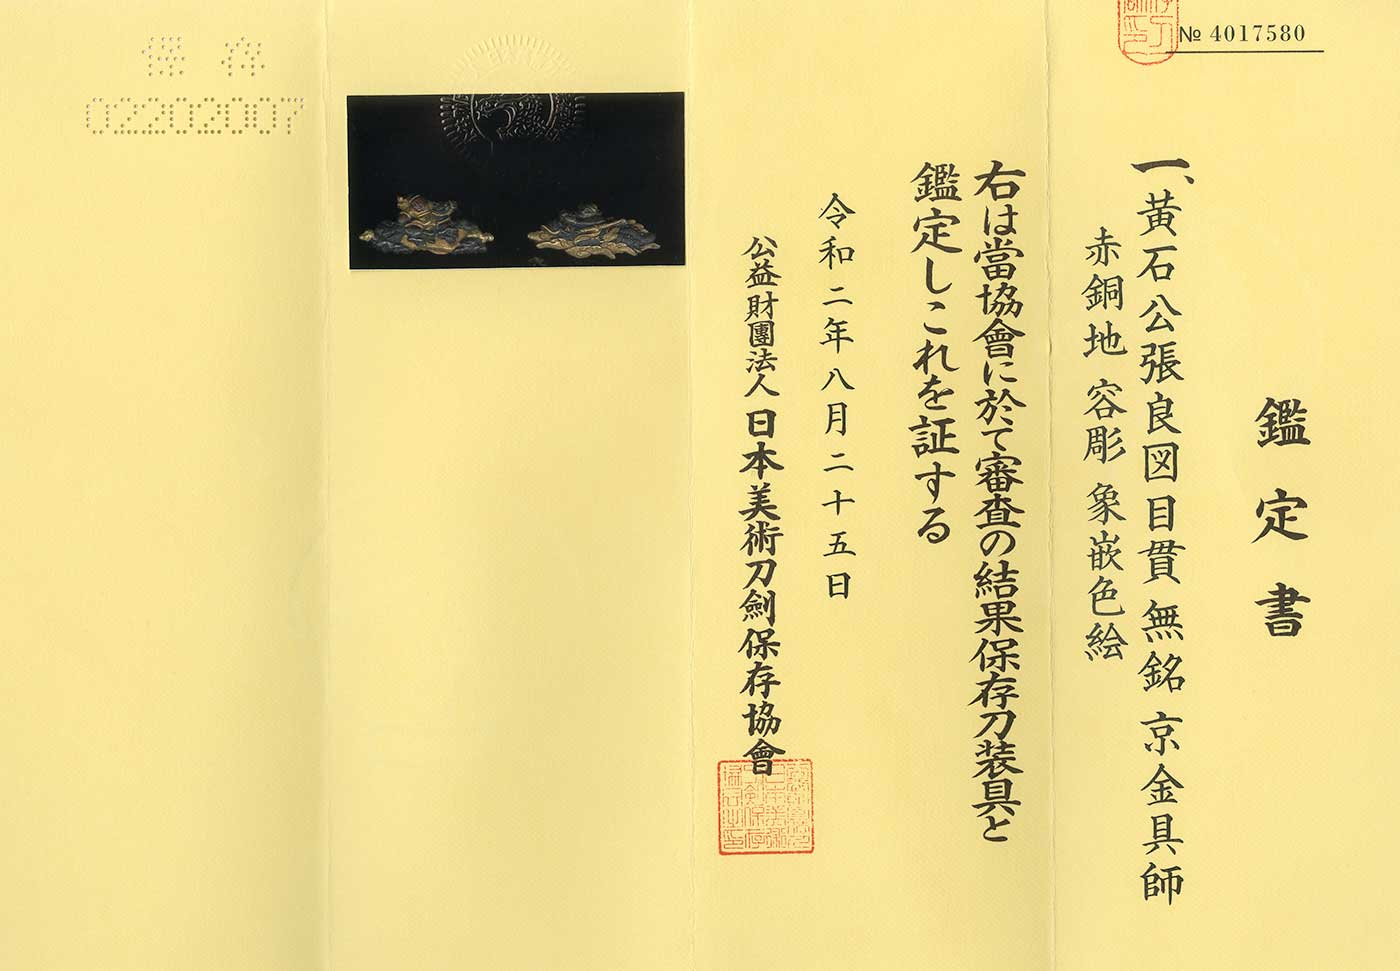 № 4017580
鑑定書
一、黃石公張良図目貫 無銘 京金具師
赤銅地 容彫 象嵌色絵
右は當協會に於て審査の結果保存刀装具と
鑑定しこれを証する
令和二年八月二十五日
公益財團法人 日本美術刀劍保存協會
保存
02202007